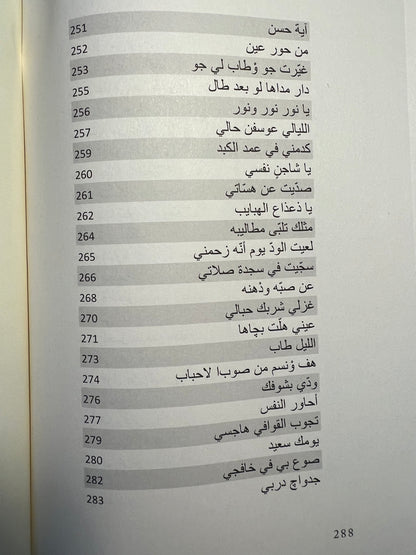 آية حسن 251
من حور عين 252
غيّرت جو ؤطاب لي جو 253
دار مداها لو بعد طال 255
يا نور نور ونور 256
الليالي عوسفن حالي 257
كدمني في عمد الكبد 259
يا شاجنٍ نفسي 260
صدّيت عن هسّاتي 261
يا ذعذاع الهبايب 262
مثلك تلبّى مطاليبه 264
لعيت الودّ يوم أنّه زحمني 265
سجّيت في سجدة صلاتي 266
عن صبّه وذهنه 268
غزلي شربك حبالي 270
عيني هلّت بچاها 271
الليل طاب 273
هف ؤنسم من صوب الاحباب 274
ودّي بشوفك 276
أحاور النفس 277
تجوب القوافي هاجسي 279
يومك سعيد 280
صوع بي في خافجي 282
جدواچ دربي 283
288